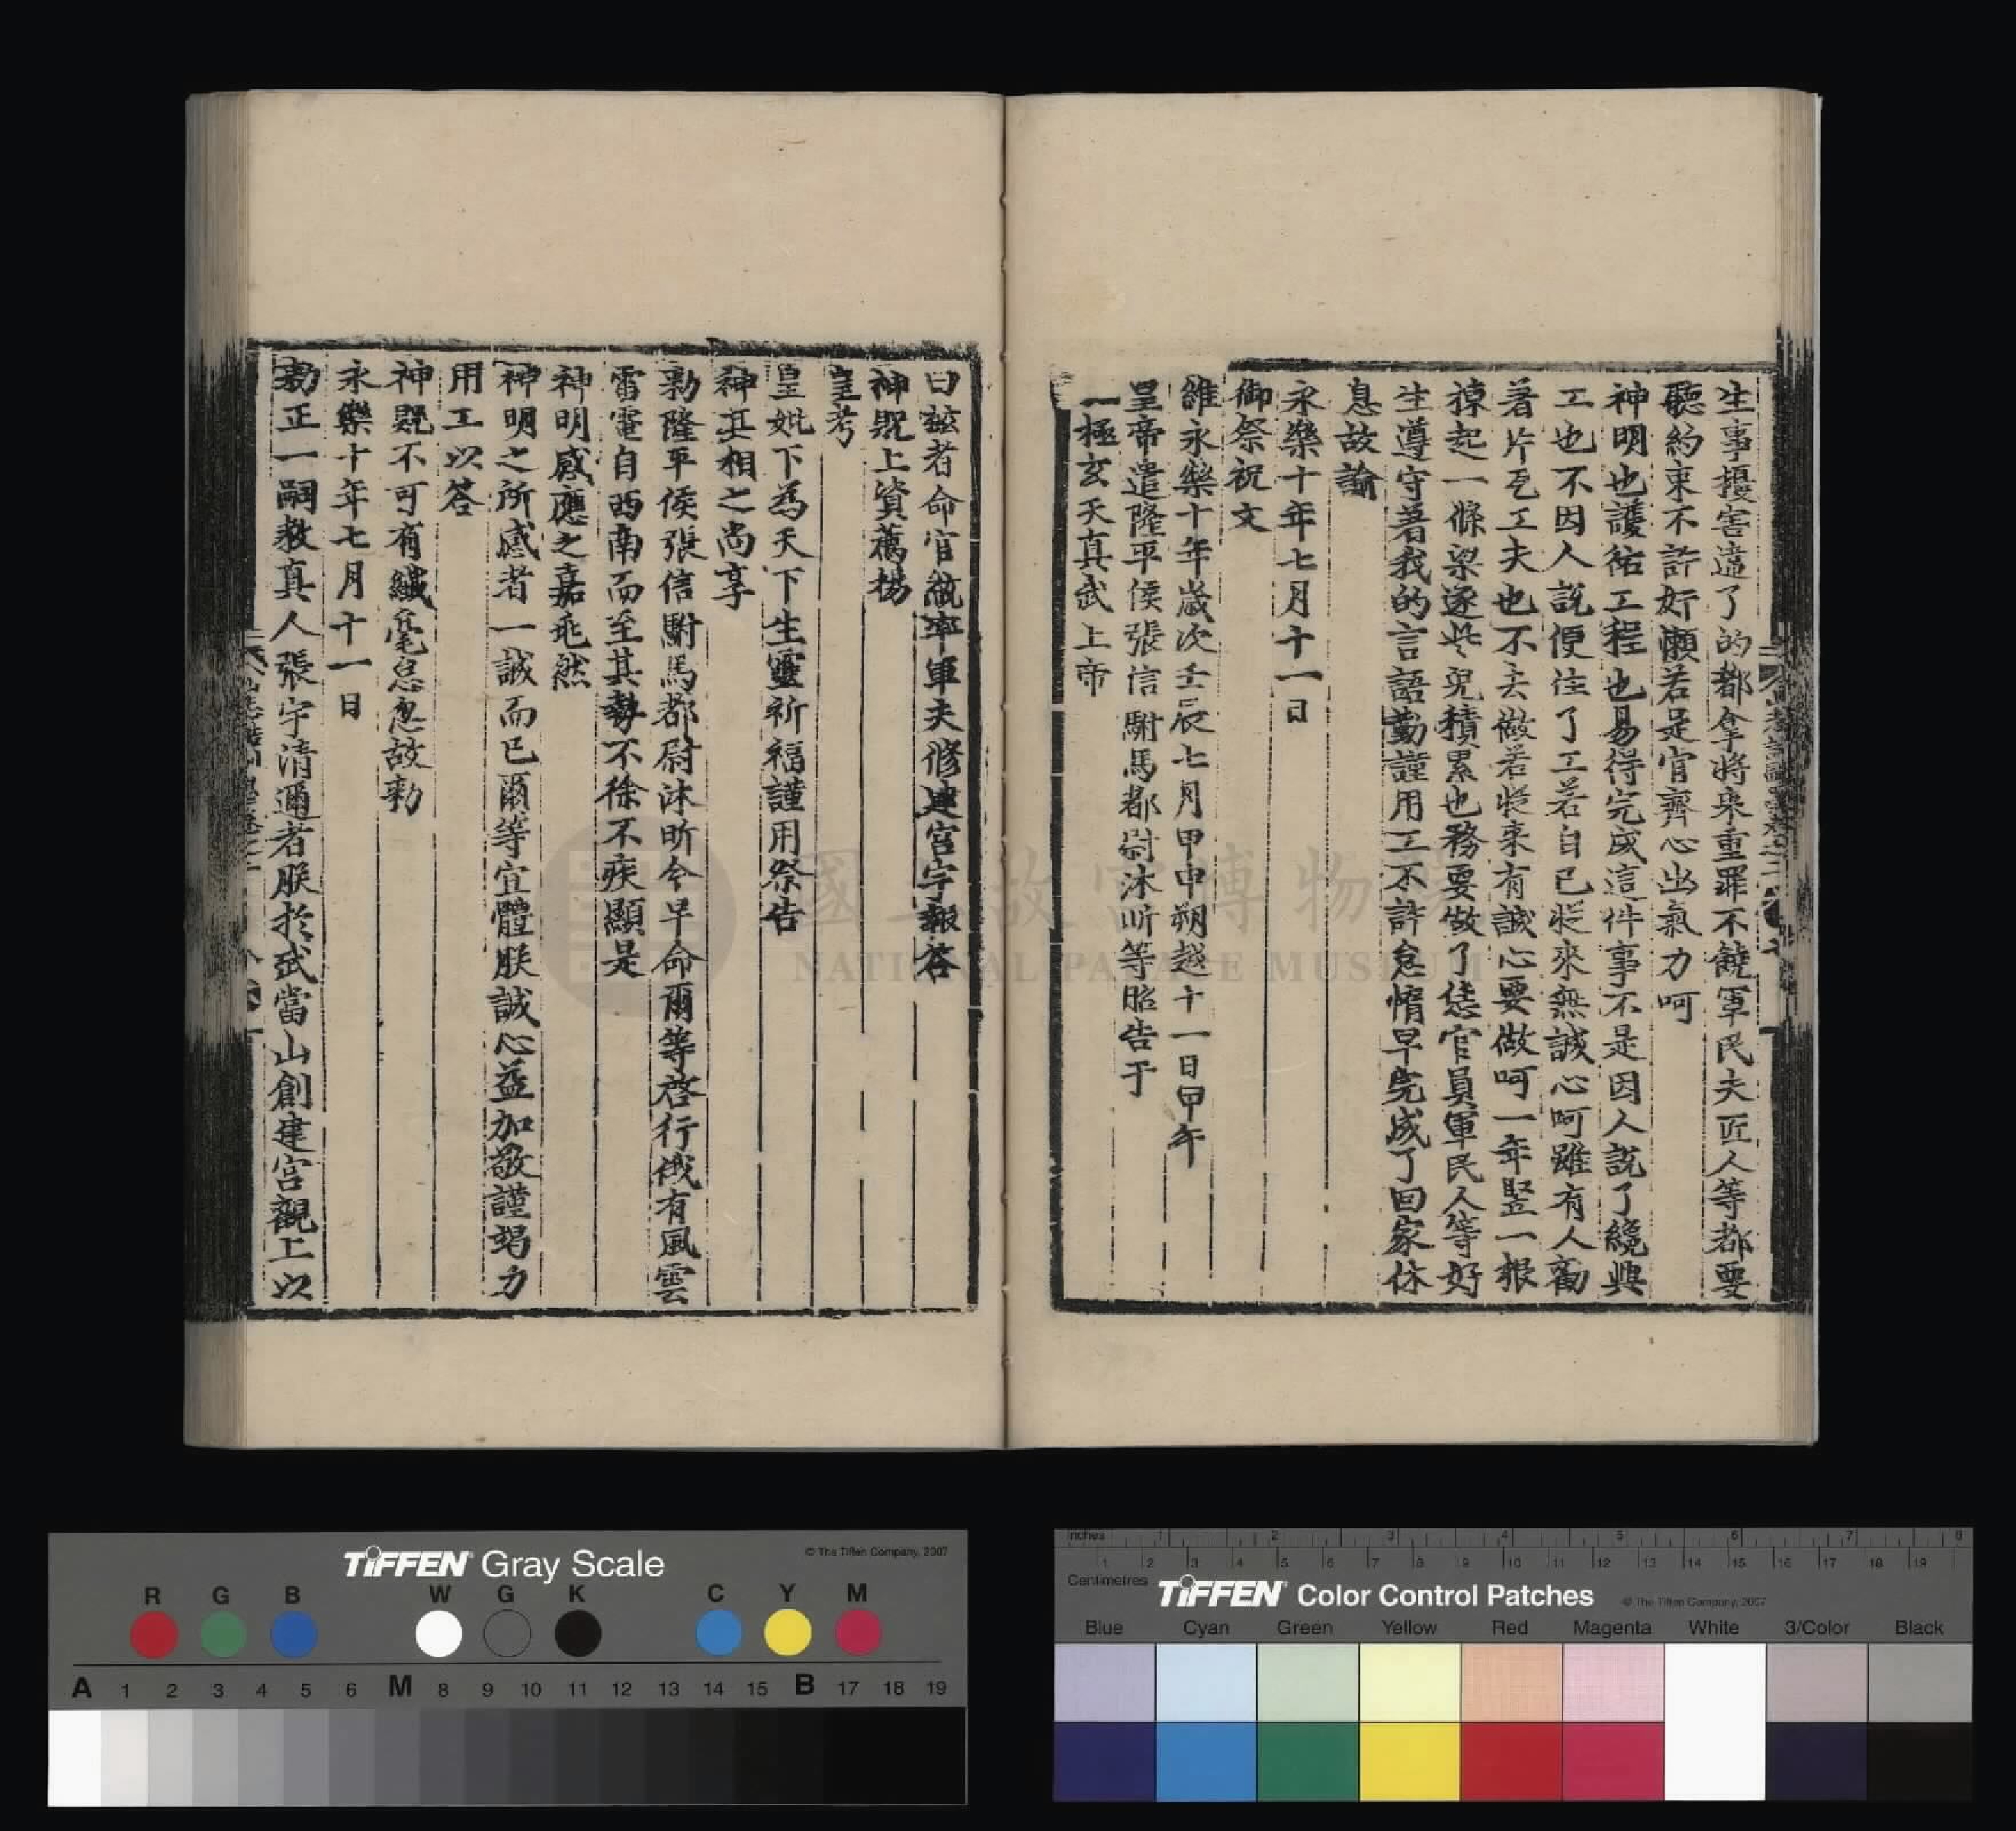 生事擾害違了的都拿將來重罪不饒軍民夫匠人等都要
聽約束不許奸懶若是官齊心出氣力呵
神明也護祐工程也易得完成這件事不是因人說了纔興
工也不因人說便住了工若自己從來無誠心呵雖有人勸
著片瓦工夫也不去做若從來有誠心要做呵一年豎一根
椽起一條梁逐些兒積累也務要做了恁官員軍民人等好
生遵守著我的言語勤謹用工不許怠惰早完成了回家休
息故諭
永樂十年七月十一日
御祭祝文
維永樂十年歲次壬辰七月甲申朔越十一日甲午
皇帝遣隆平侯張信駙馬都尉沐昕等昭告于
一極玄天真武上帝
曰茲者命官統率軍夫修建宮宇報答
神貺上資薦揚
皇考
皇妣下為天下生靈祈福謹用祭告
神其相之尚享
勑隆平侯張信駙馬都尉沐昕今早命爾等啓行俄有風雲
雷電自西南而至其勢不徐不疾顯是
神明感應之嘉兆然
神明之所感者一誠而已爾等宜體朕誠心益加敬謹竭力
用工以答
神貺不可有纖毫怠忽故勑
永樂十年七月十一日
勑正一嗣教真人張宇清邇者朕於武當山創建宮觀上以
國立故宮博物院
NATIONAL PALACE MUSEUM
TIFFEN Gray Scale
© The Tiffen Company, 2007
R G B W G K C Y M
A 1 2 3 4 5 6 M 8 9 10 11 12 13 14 15 B 17 18 19
Inches 1 2 3 4 5 6 7 8
1 2 3 4 5 6 7 8 9 10 11 12 13 14 15 16 17 18 19
Centimetres
TIFFEN Color Control Patches
© The Tiffen Company, 2007
Blue Cyan Green Yellow Red Magenta White 3/Color Black